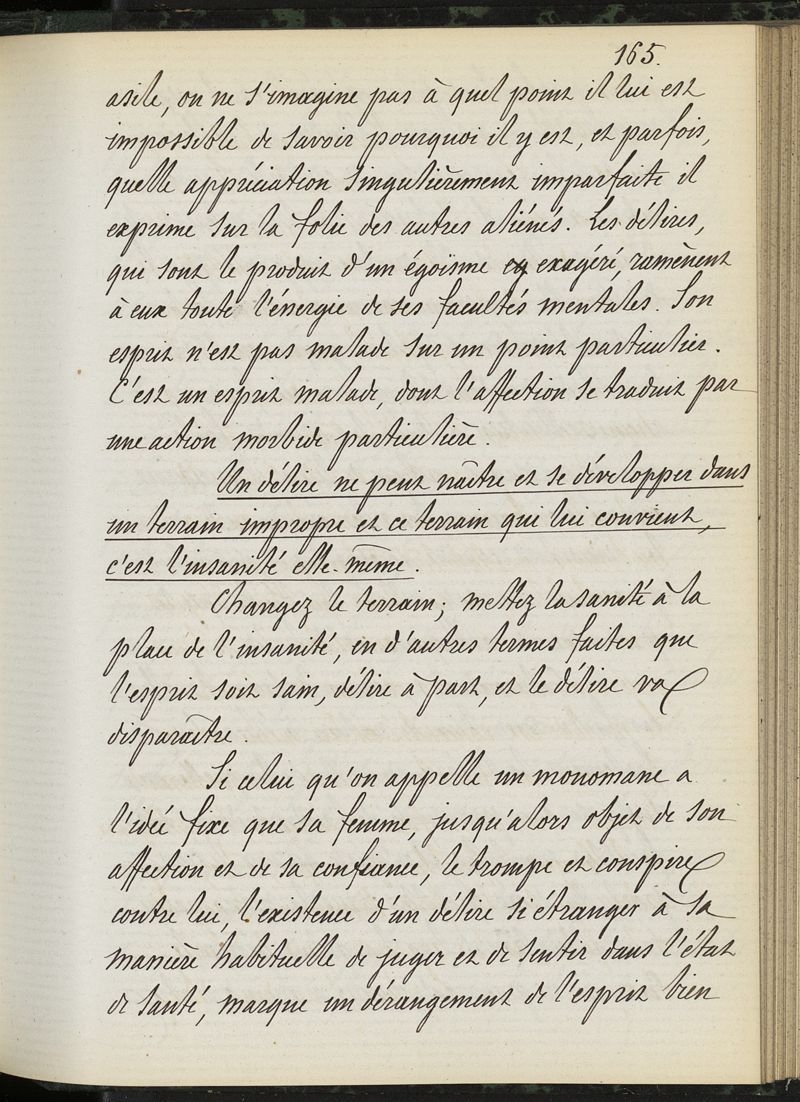 165.
asile, on ne s'imagine pas à quel point il lui est
impossible de savoir pourquoi il y est, et parfois,
quelle appréciation singulièrement imparfaite il
exprime sur la folie des autres aliénés. Les délires,
qui sont le produit d'un égoïsme exagéré, ramènent
à eux toute l'énergie de ses facultés mentales. Son
esprit n'est pas malade sur un point particulier.
C'est un esprit malade, dont l'affection se traduit par
une action morbide particulière.
Un délire ne peut naître et se développer dans
un terrain impropre et ce terrain qui lui convient,
c'est l'insanité elle-même.
Changez le terrain; mettez la sanité à la
place de l'insanité, en d'autres termes faites que
l'esprit soit sain, délire à part, et le délire va
disparaître.
Si celui qu'on appelle un monomane a
l'idée fixe que sa femme, jusqu'alors objet de son
affection et de sa confiance, le trompe et conspire
contre lui, l'existence d'un délire si étranger à sa
manière habituelle de juger et de sentir dans l'état
de santé, marque un dérangement de l'esprit bien